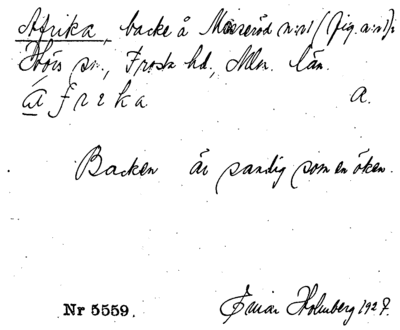 Afrika, backe å Mosseröd n:r 1 (fig. n:r 1) i
Höörs sn., Frosta hd., Mlm. län.
áfrika a.
Backen är sandig som en öken.
Nr 5559. Einar Holmberg 1927.